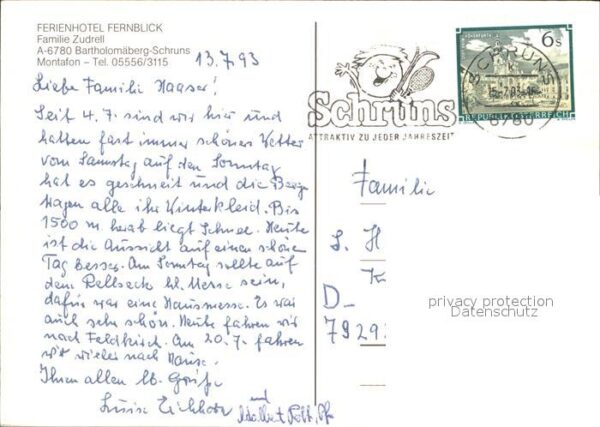 FERIENHOTEL FERNBLICK
Familie Zudrell
A-6780 Bartholomäberg-Schruns
Montafon – Tel. 05556/3115
13.7.93
Liebe Familie Haaser!
Seit 4.7. sind wir hier und
hatten fast immer schönes Wetter
vom Samstag auf den Sonntag
hat es geschneit und die Berge
tragen alle ihr Winterkleid. Bis
1500 m herab liegt Schnee. Heute
ist die Aussicht auf einen schönen
Tag besser. Am Sonntag sollte auf
dem Rellseck hl. Messe sein,
dafür war eine Hausmesse. Es war
auch sehr schön. Heute fahren wir
nach Feldkirch. Am 20.7. fahren
wir wieder nach Hause.
Ihnen allen lb. Grüße
Luise und Adalbert
Schruns
ATTRAKTIV ZU JEDER JAHRESZEIT
SCHRUNS
6780
6 S
REPUBLIK ÖSTERREICH
Familie
L. H
D-
7929
privacy protection
Datenschutz